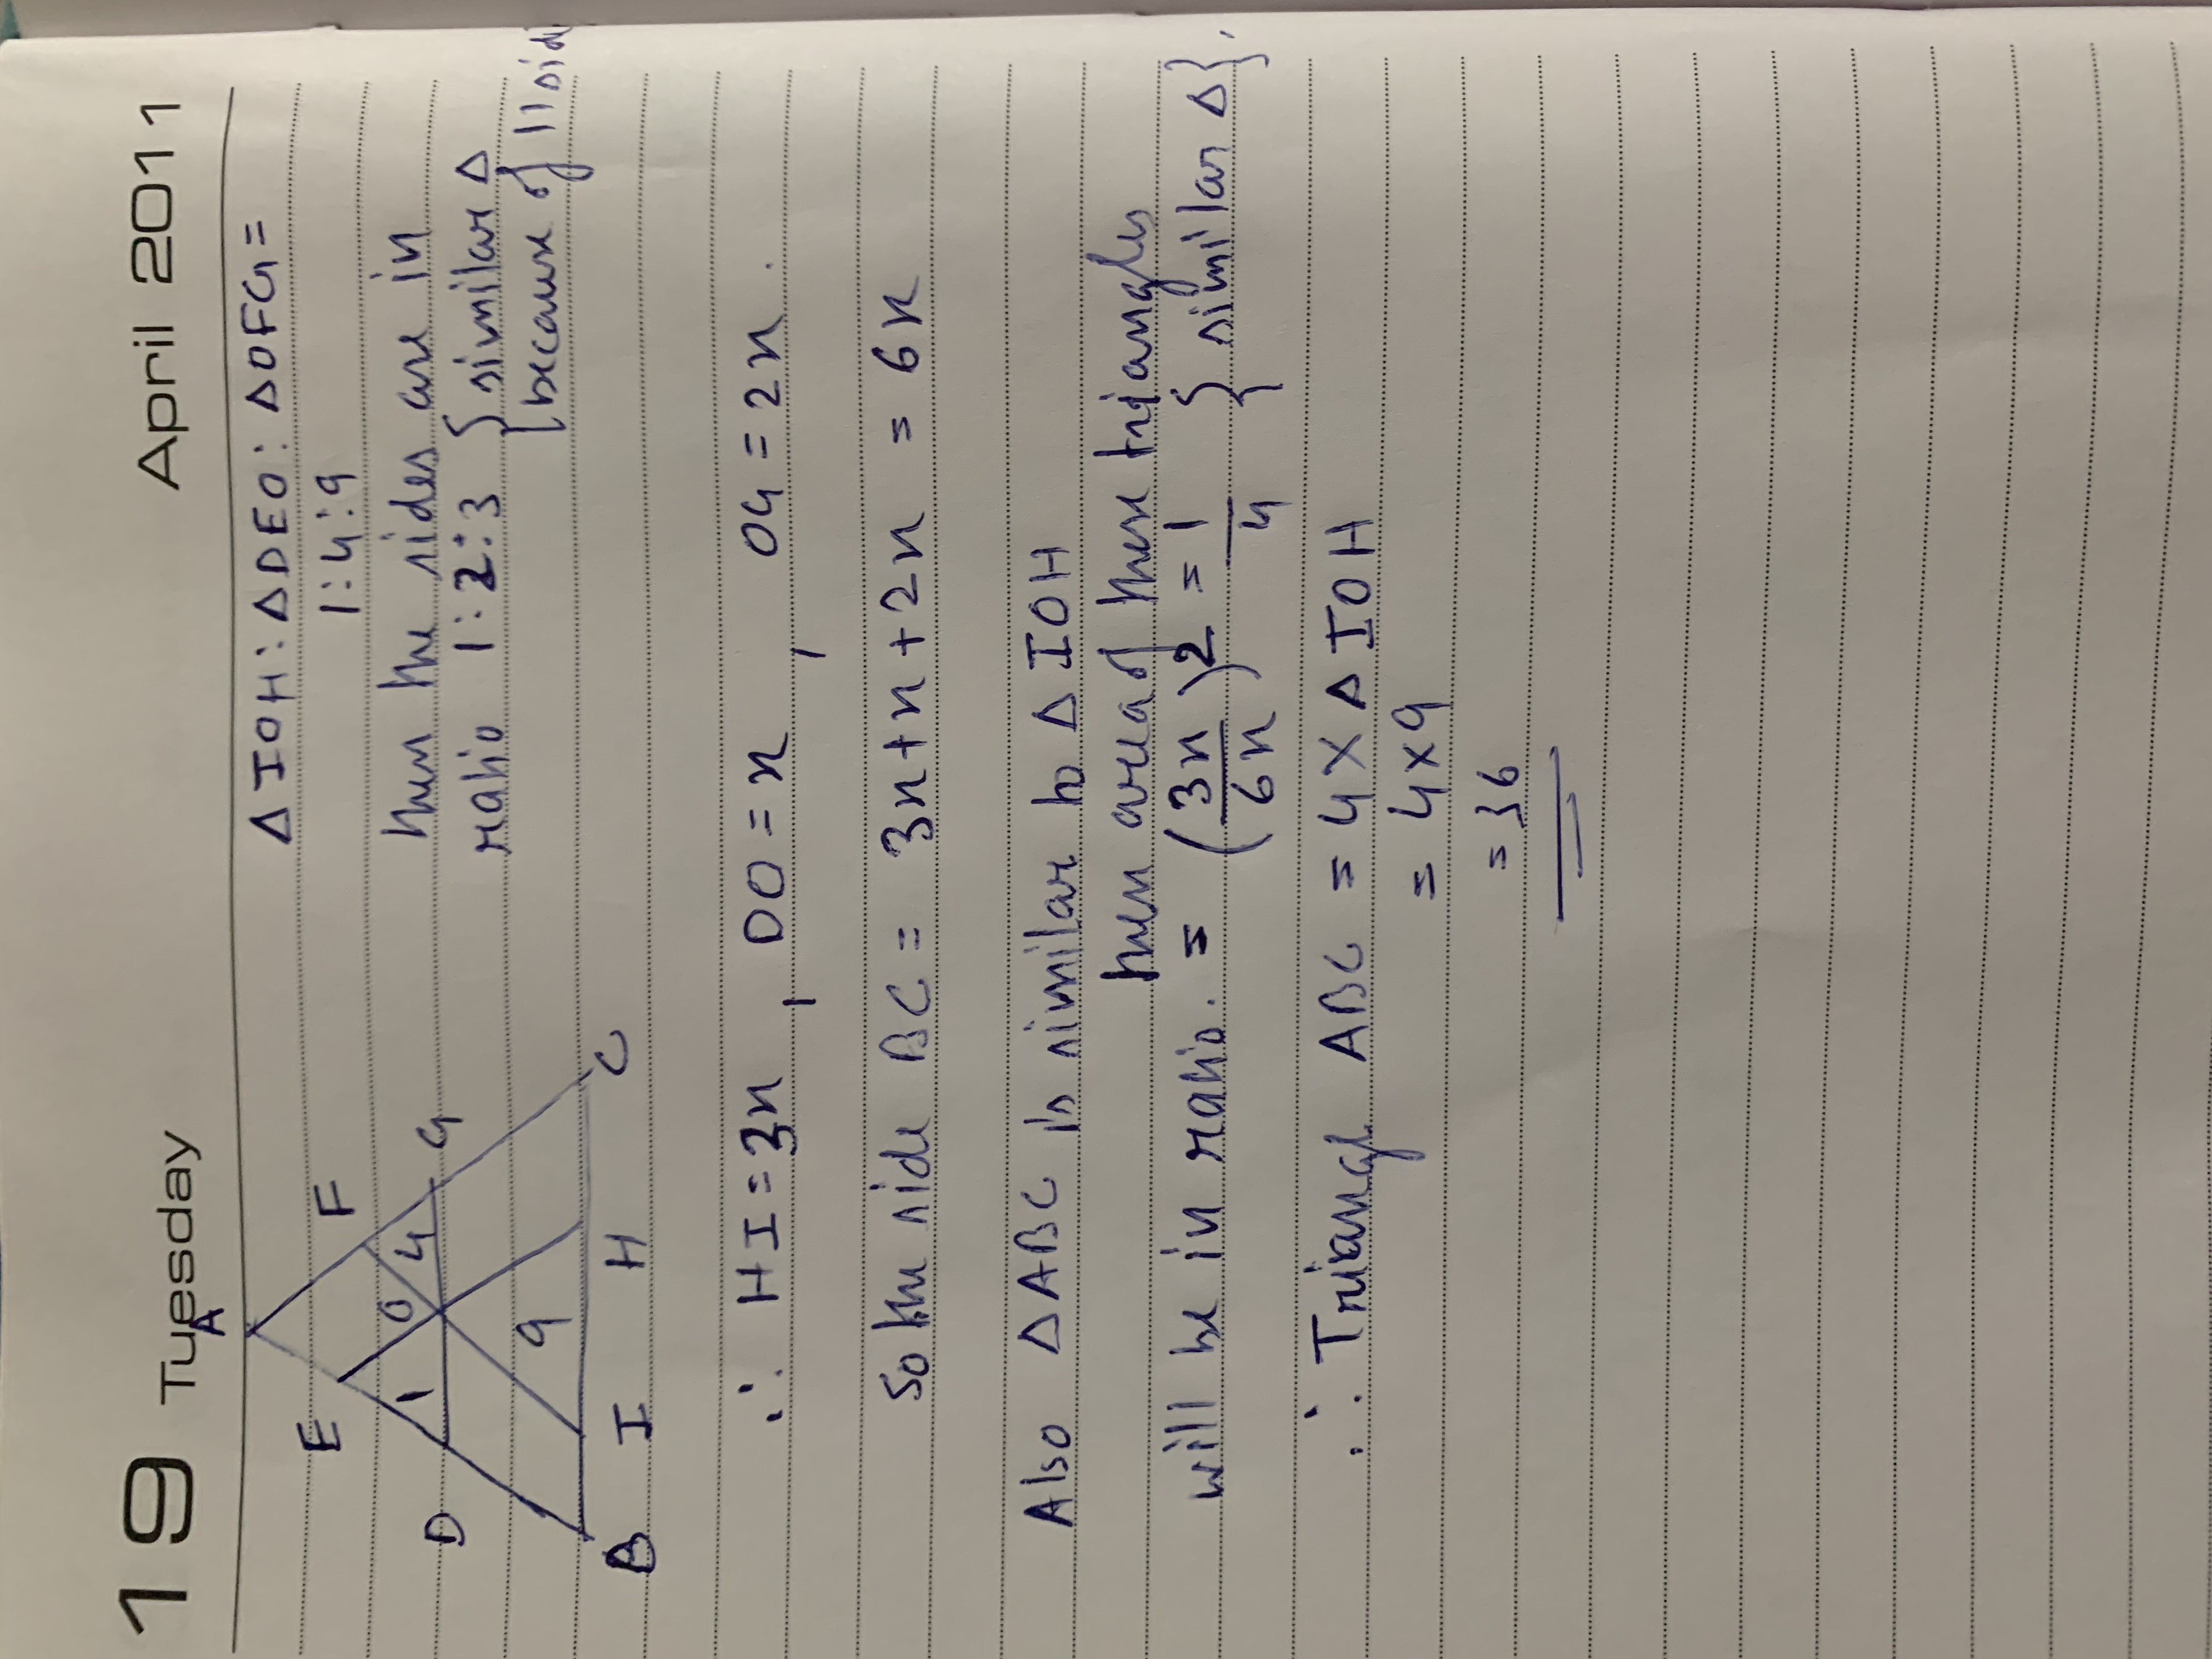 19 Tuesday April 2011
A
E F
O
D 1 4 G
9
B I H C
Δ IOH : Δ DEO : Δ OFG =
1:4:9
then the sides are in
ratio 1:2:3 { similar Δ
{ because of || sid
∴ HI = 3x , DO = x , OG = 2x .
So the side BC = 3x + x + 2x = 6x
Also Δ ABC is similar to Δ IOH
then area of these triangles
will be in ratio. = (3x/6x)2 = 1/4 { similar Δ }.
∴ Triangl ABC = 4 × Δ IOH
= 4×9
= 36